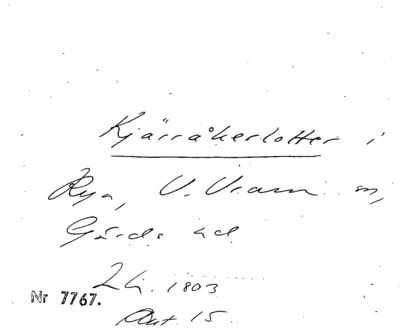 Kjärråkerlotter i
Rya, V. Vram sn,
Gärds hd
1803
Nr 7767.
15